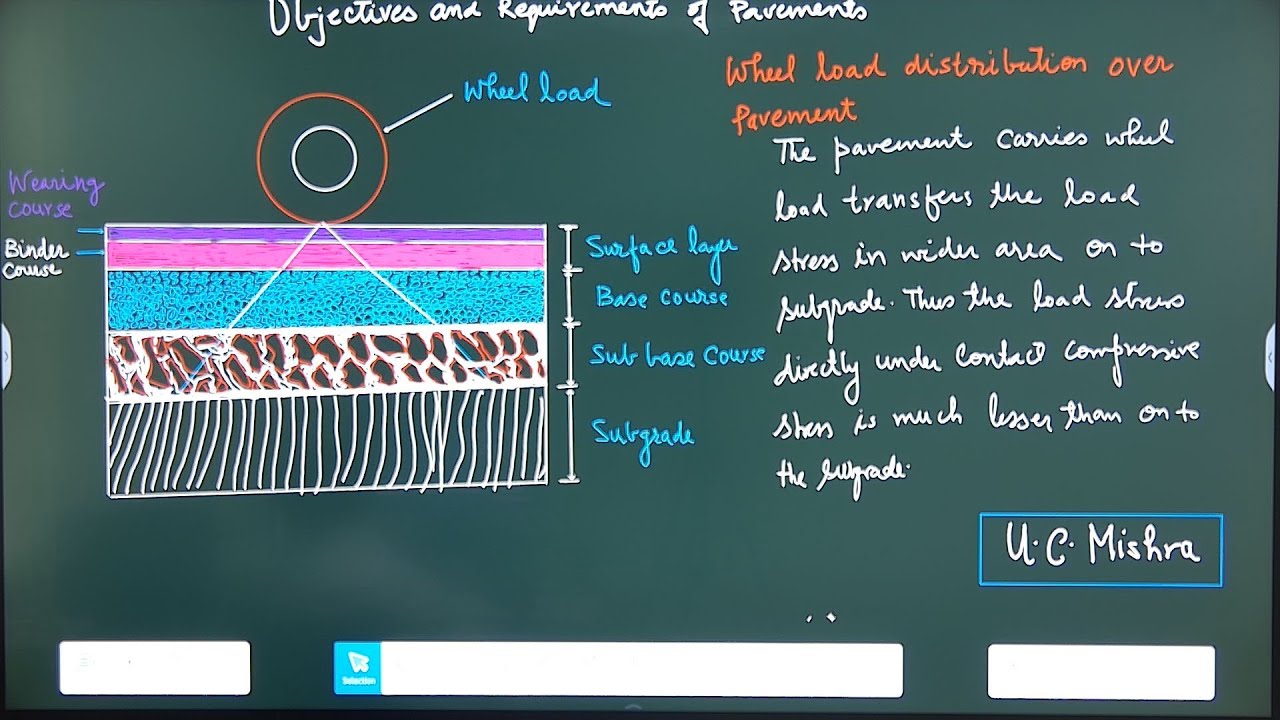 Objectives and Requirements of Pavements
Wheel load distribution over
Pavement
Wheel load
The pavement carries wheel
load transfers the load
stress in wider area on to
subgrade. Thus the load stress
directly under contact compressive
stress is much lesser than on to
the subgrade.
Wearing
course
Binder
course
Surface layer
Base course
Sub base course
Subgrade
U.C. Mishra
Selection